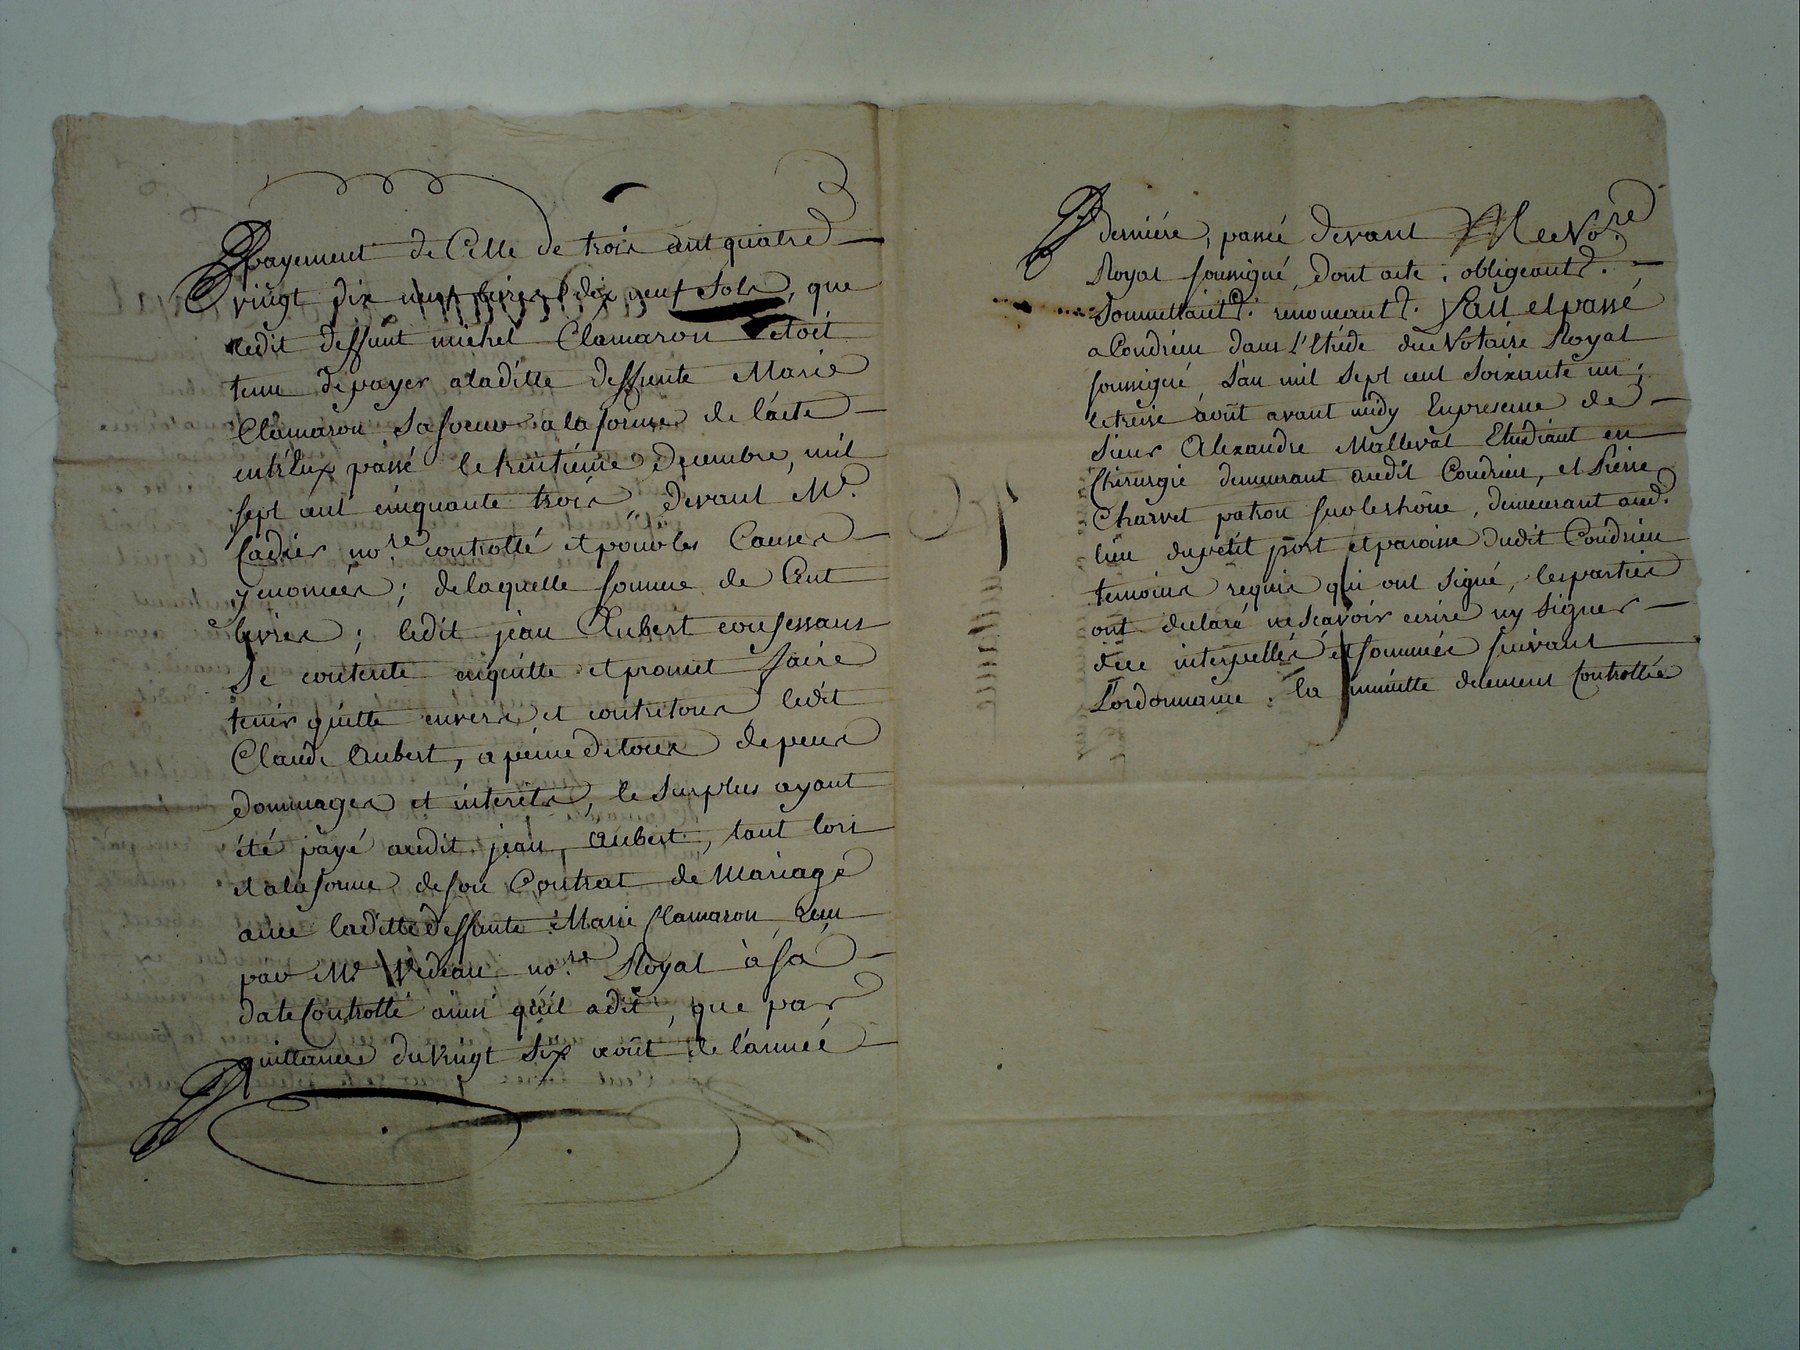 payement de Celle de trois cent quatre
vingt dix neuf livres dix neuf sols, que
ledit deffunt michel Clamaron etoit
tenu de payer aladitte deffunte Marie
Clamaron sa soeur a la forme de l'acte
entr'Eux passé le trentiéme Decembre, mil
sept cent cinquante trois, devant Me.
Cadier nore. controllé et pour les Causes
y enoncées; de laquelle somme de Cent
livres; ledit jean Aubert confessant
se contente enquitte et promet faire
tenir quitte envers et contre tous ledit
Claude Aubert, a peine de tous depens
dommages et interets, le surplus ayant
été payé audit jean Aubert, tant lors
et a la forme de son Contrat de Mariage
avec laditte deffunte Marie Clamaron reçu
par Me nore. Royal à sa
date Controllé ainsi qu'il a dit, que par
quittance du vingt six août de l'année
derniére, passée devant Me le Nore.
Royal soussigné, dont acte. obligeant &.
soumettant &. renonceant &. Fait et passé
a Condrieu dans l'Etude du Notaire Royal
soussigné l'an mil sept cent soixante un;
le treize août avant midy En presence de
sieur Alexandre Mallevat Etudiant en
Chirurgie demeurant audit Condrieu, et Pierre
Charvet patron sur le rhône, demeurant aud.
lieu du petit port et paroisse dudit Condrieu
temoins requis qui ont signé, les parties
ont declaré ne sçavoir ecrire ny signer
de ce interpellés et sommées suivant
l'ordonnance. la minutte duement Controllée